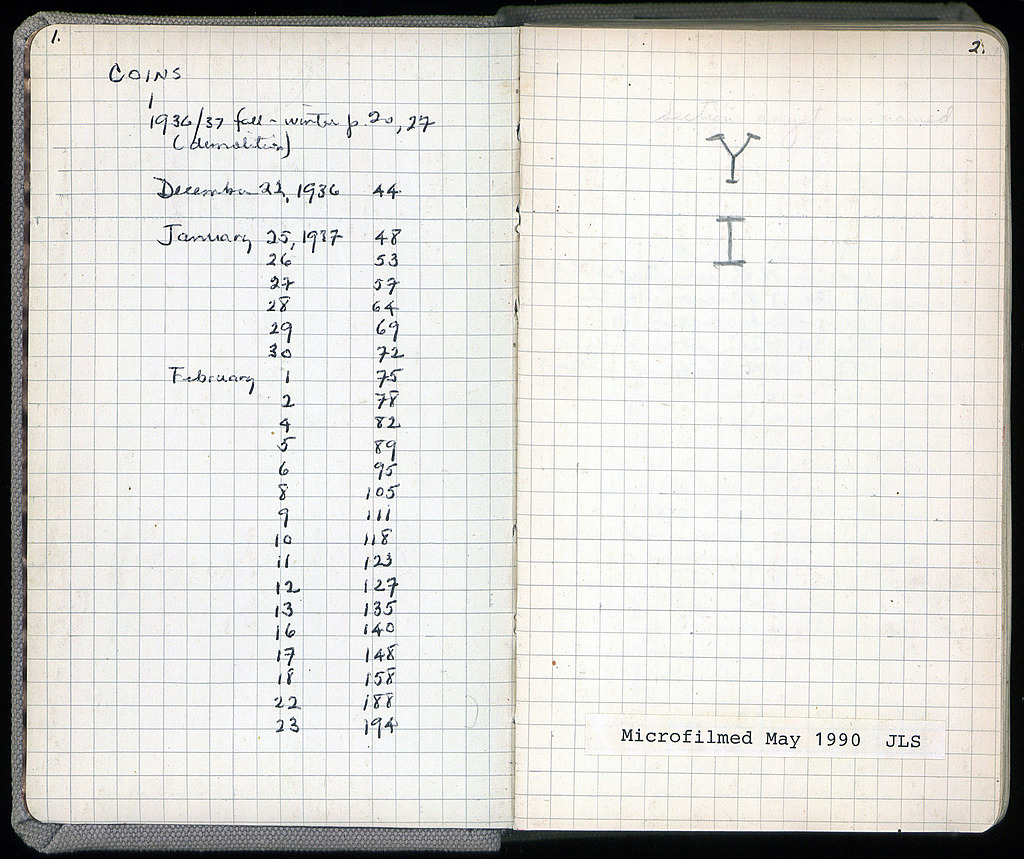 1.
COINS
1
1936/37 fall - winter p. 20, 27
(demolition)
December 22, 1936 44
January 25, 1937 48
26 53
27 57
28 64
29 69
30 72
February 1 75
2 78
4 82
5 89
6 95
8 105
9 111
10 118
11 123
12 127
13 135
16 140
17 148
18 158
22 188
23 194
2.
Y
I
Microfilmed May 1990 JLS